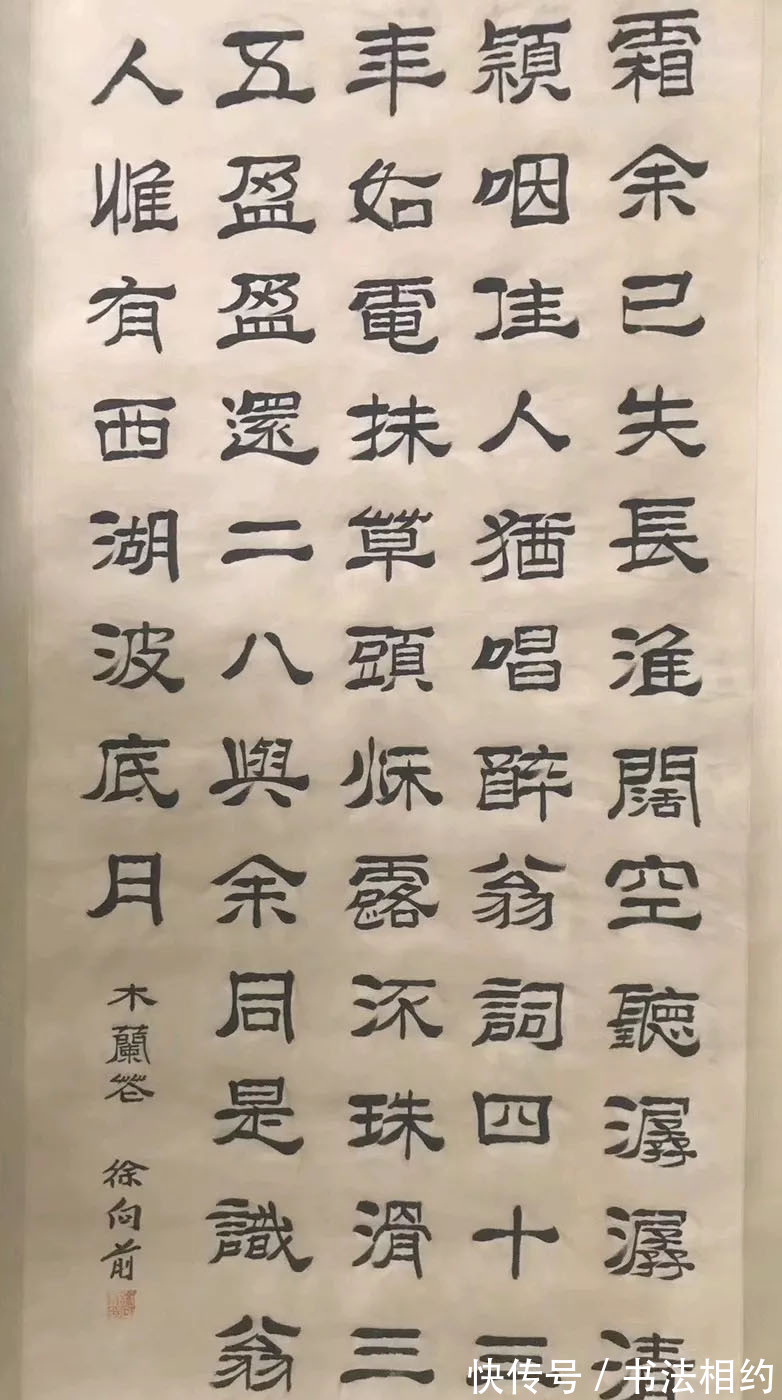 霜余已失長淮闊空聽潺潺清
潁咽佳人猶唱醉翁詞四十三
年如電抹草頭秋露流珠滑三
五盈盈還二八與余同是識翁
人惟有西湖波底月
木蘭花 徐向前
快传号 / 书法相约